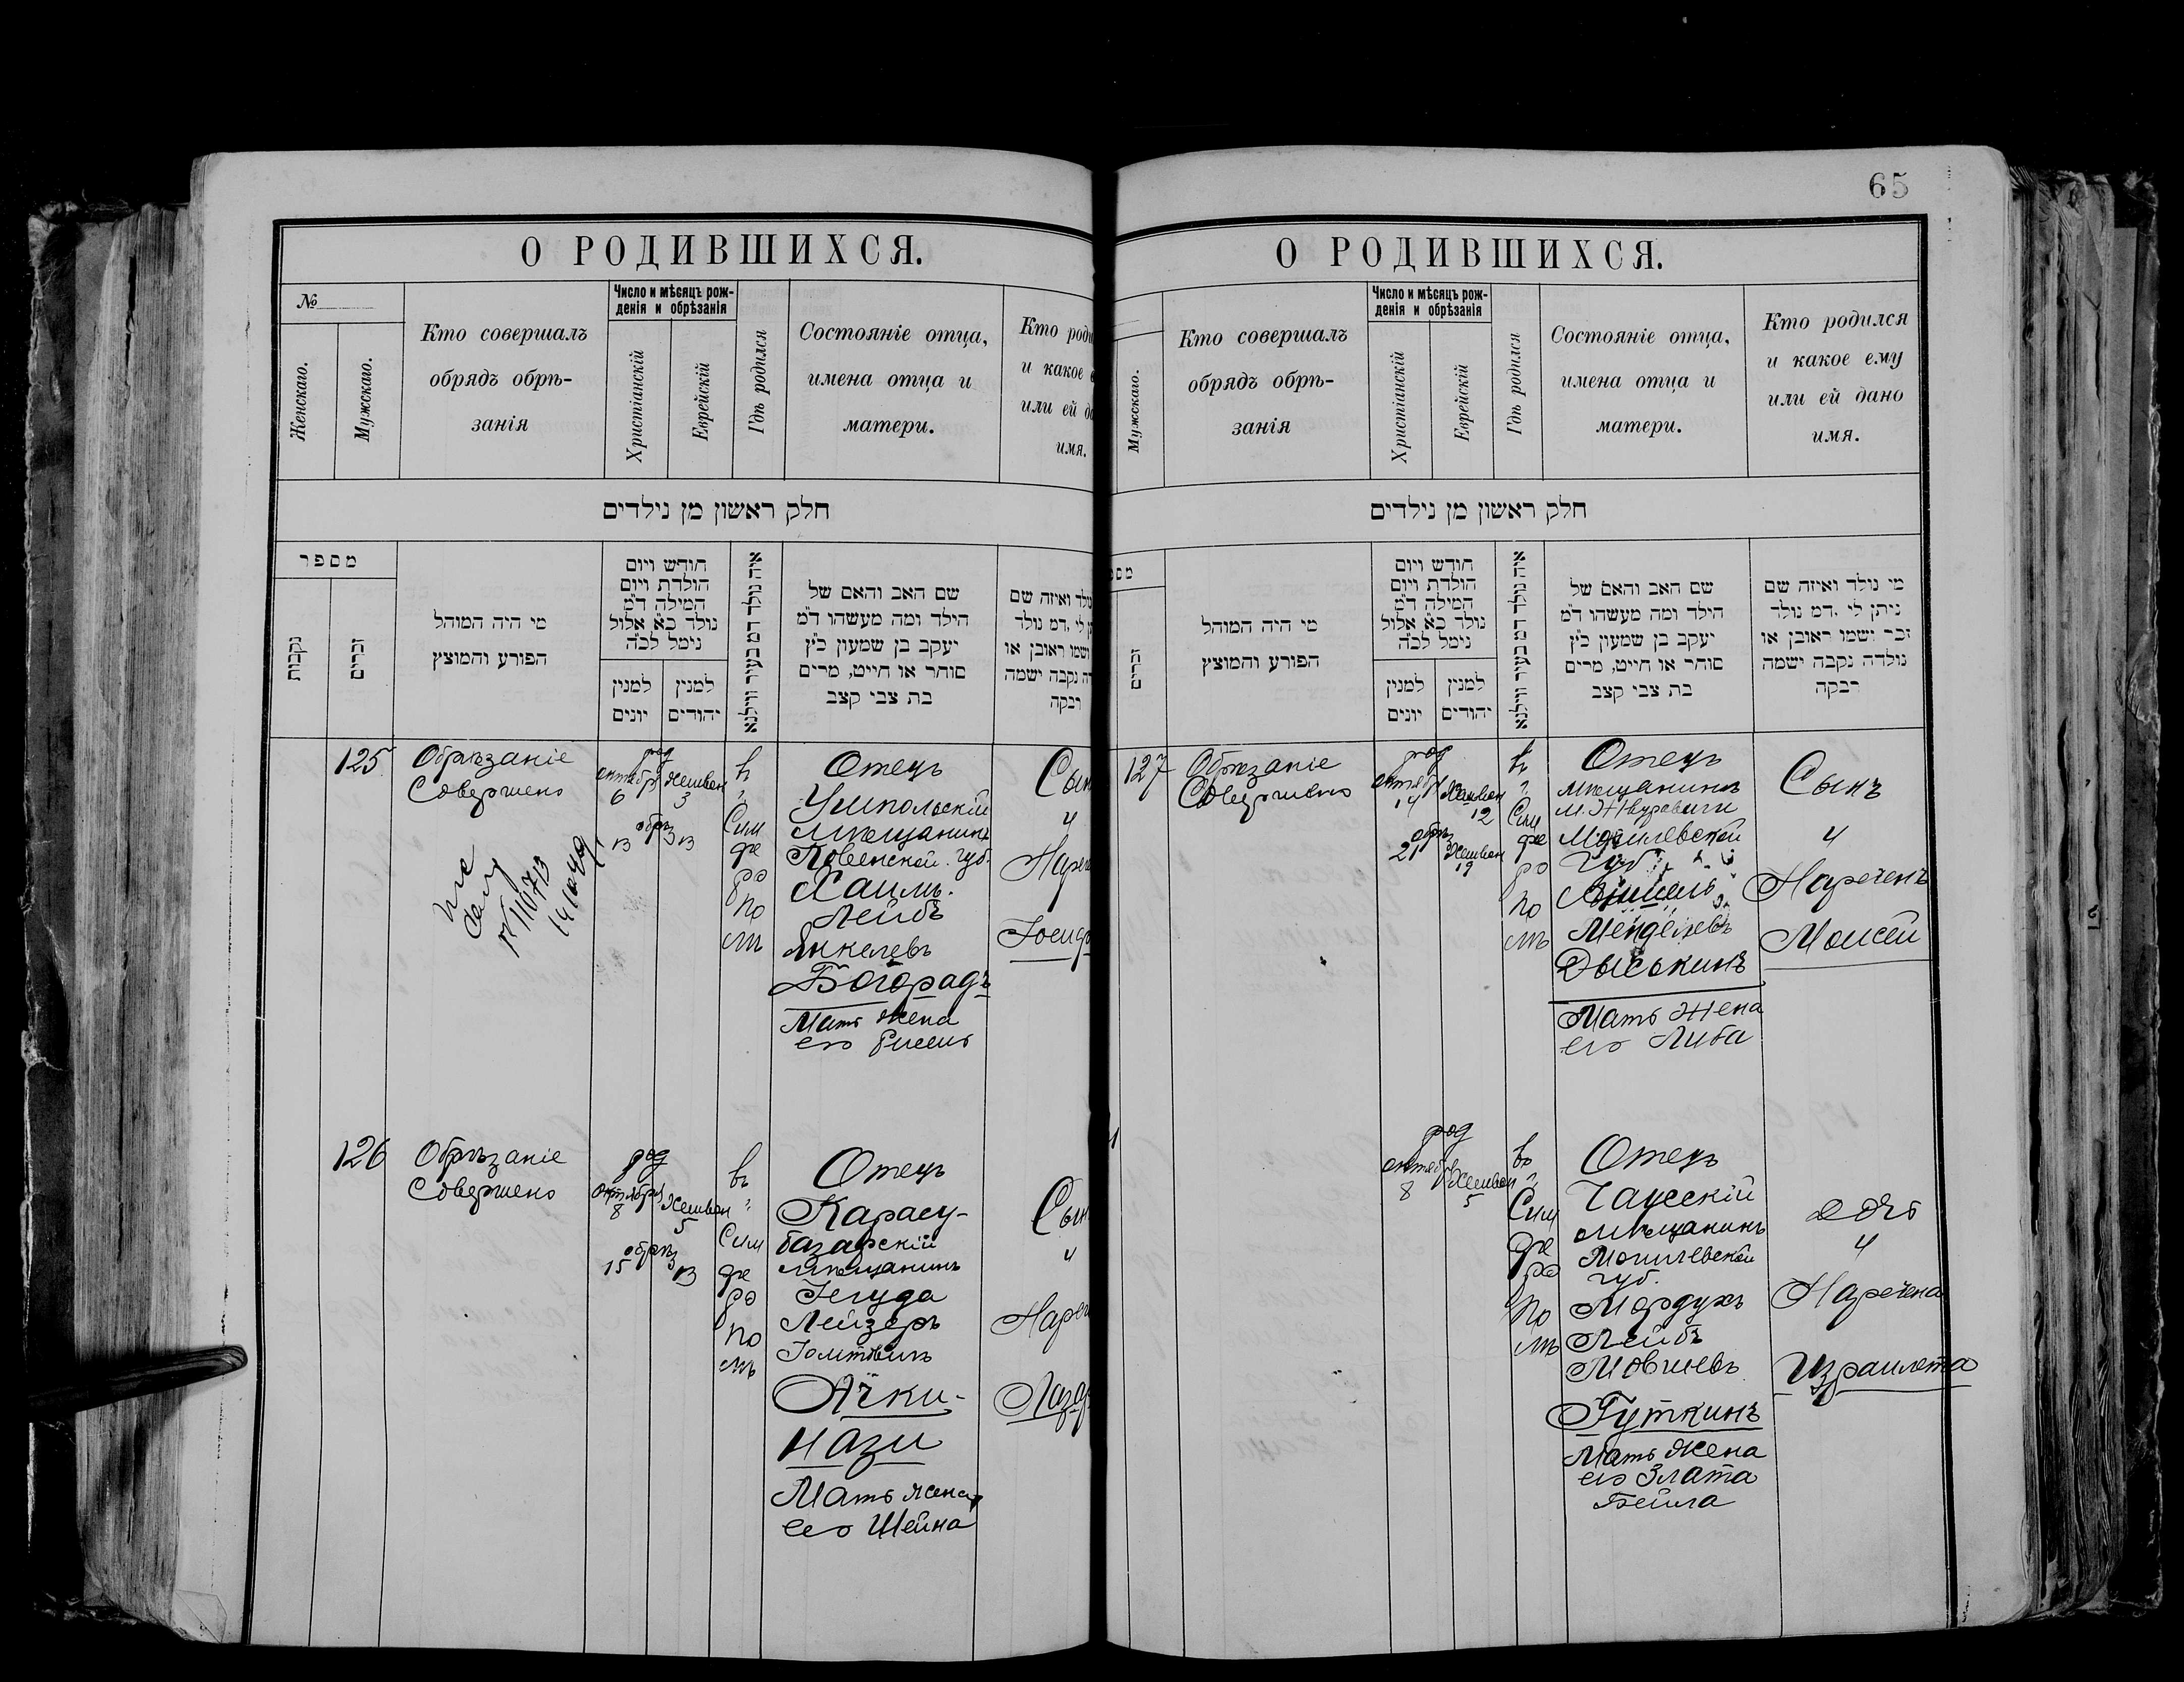 65
О РОДИВШИХСЯ.
№
Женскаго.
Мужскаго.
Кто совершалъ
обрядъ обрѣ-
занія
Число и мѣсяцъ рож-
денія и обрѣзанія
Христіанскій
Еврейскій
Гдѣ родился
Состояніе отца,
имена отца и
матери.
Кто роди
и какое
или ей д
имя.
חלק ראשון מן נילדים
מספר
נקבות
זכרים
מי היה המוהל
הפורע והמוצץ
חודש ויום
הולדת ויום
המילה ד״מ
נולד כ״א אלול
נימל לכ״ה
למנין
יונים
למנין
יהודים
איה נולד דמ בעיר ווילנא
שם האב והאם של
הילד ומה מעשהו ד״מ
יעקב בן שמעון כ״ץ
סוחר או חייט, מרים
בת צבי קצב
ולד ואיזה שם
לי ,דמ נולד
ישמו ראובן או
ה נקבה ישמה
רבקה
125
Обрѣзаніе
Совершено
род
октябр Хешван
6 3
обрѣз
13
въ
г.
Сим
фе
ро
по
лѣ
Отецъ
Умпольскій
мѣщанинъ
Ковенской губ.
Хаимъ
Лейбъ
Янкелевъ
Богорадъ
Мать жена
его
Сын
и
Нареч
Іосиф
126
Обрѣзаніе
Совершено
род
Октября Хешван
8 5
обрѣз
15 13
въ
г.
Сим
фе
ро
по
лѣ
Отецъ
Карасу-
базарскій
мѣщанинъ
Іегуда
Лейзеръ
Іомтовичъ
Ачки-
нази
Мать жена
его Шейна
Сын
и
Нареч
Лазар
О РОДИВШИХСЯ.
Мужскаго.
Кто совершалъ
обрядъ обрѣ-
занія
Число и мѣсяцъ рож-
денія и обрѣзанія
Христіанскій
Еврейскій
Гдѣ родился
Состояніе отца,
имена отца и
матери.
Кто родился
и какое ему
или ей дано
имя.
חלק ראשון מן נילדים
זכרים
מי היה המוהל
הפורע והמוצץ
חודש ויום
הולדת ויום
המילה ד״מ
נולד כ״א אלול
נימל לכ״ה
למנין
יונים
למנין
יהודים
איה נולד דמ בעיר ווילנא
שם האב והאם של
הילד ומה מעשהו ד״מ
יעקב בן שמעון כ״ץ
סוחר או חייט, מרים
בת צבי קצב
מי נולד ואיזה שם
ניתן לי ,דמ נולד
זכר ישמו ראובן או
נולדה נקבה ישמה
רבקה
127
Обрѣзаніе
Совершено
род
октябр Хешван
14 12
обрѣз
21 Хешван
19
въ
г.
Сим
фе
ро
по
лѣ
Отецъ
мѣщанинъ
м. Журавичи
Могилевской
губ.
Менделевъ
Дыськинъ
Мать жена
его Либа
Сынъ
и
Нареченъ
Моисей
род
октябр Хешван
8 5
въ
г.
Сим
фе
ро
по
лѣ
Отецъ
Чаусскій
мѣщанинъ
Могилевской
губ.
Мордухъ
Лейбъ
Мовшевъ
Гуткинъ
Мать жена
его Злата
Бейла
дочь
и
Наречена
Изранлета